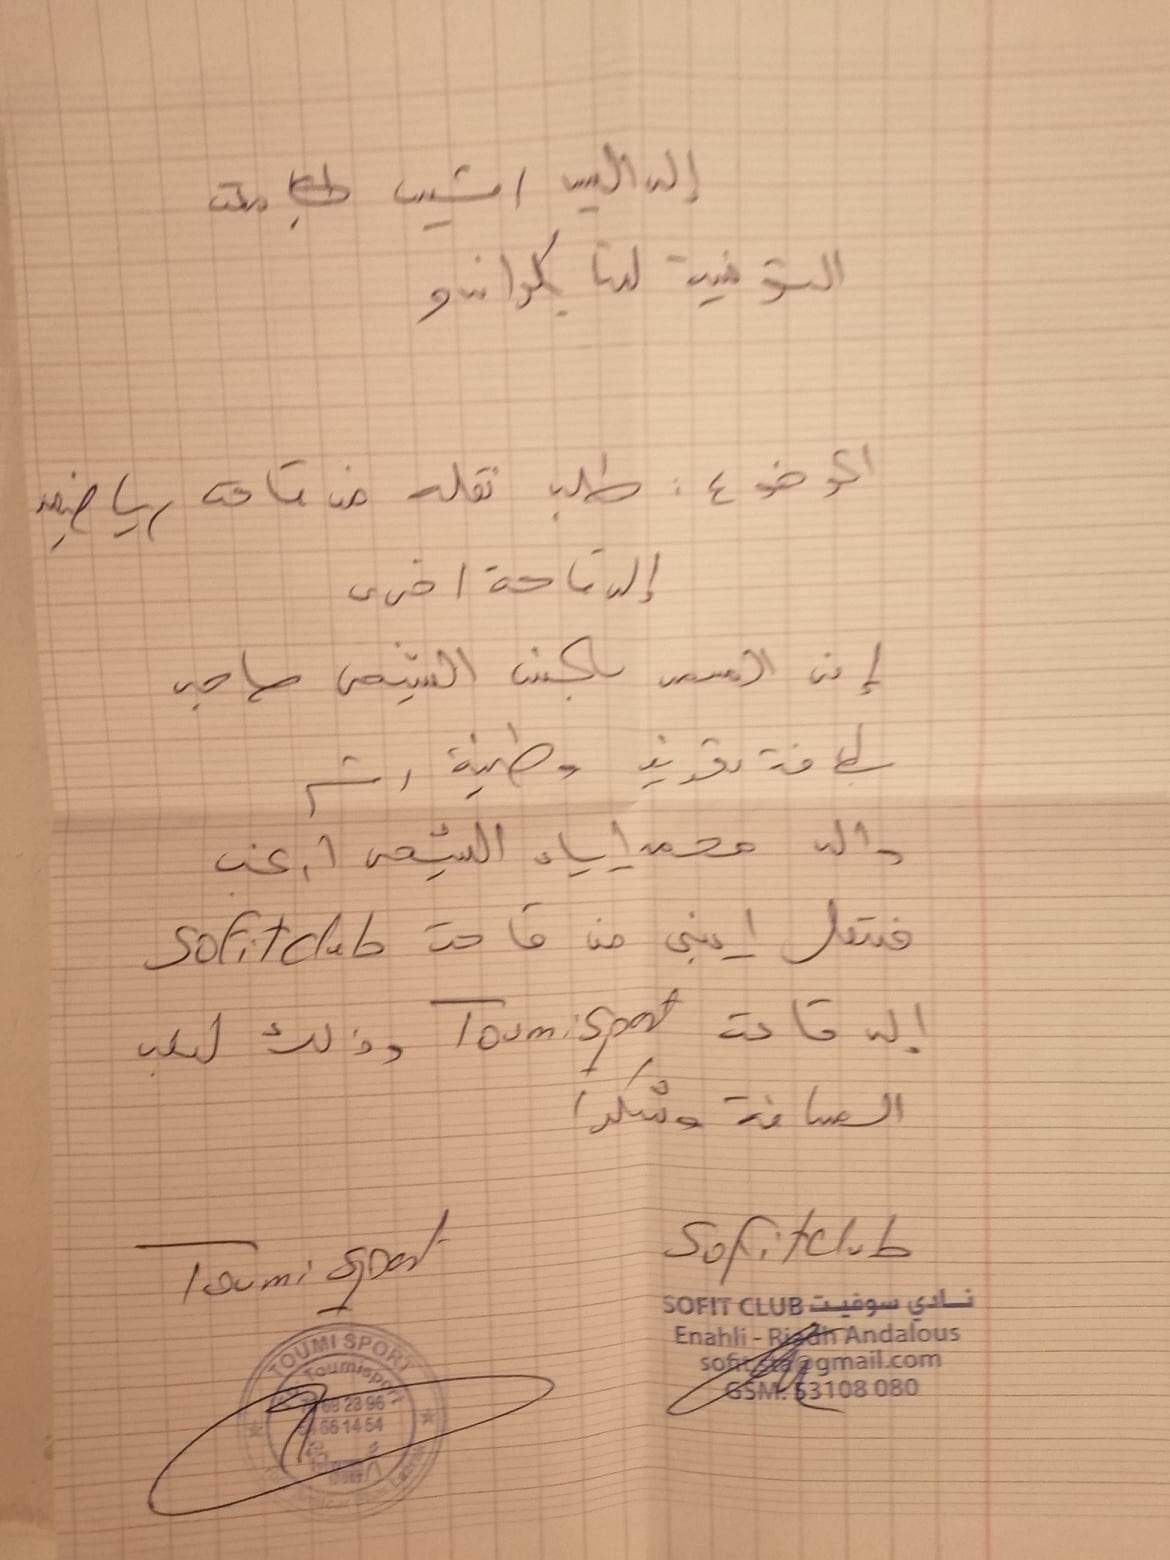 إلى السيد رئيس الجامعة
التونسية للتايكواندو
الموضوع: طلب نقلة من قاعة رياضية
إلى قاعة اخرى
إني الممضي الشيحي صاحب
بطاقة تعريف وطنية رقم
والد محمد إياد الشيحي أرغب
في نقل إبني من قاعة Sofitclub
إلى قاعة Toumi Sport وذلك لبعد
المسافة وشكرا
Sofitclub
Toumi Sport
SOFIT CLUB نادي سوفيت
Enahli - Riadh Andalous
@gmail.com
GSM: 53108 080
TOUMI SPORT
Toumisport
68 23 96
66 14 54